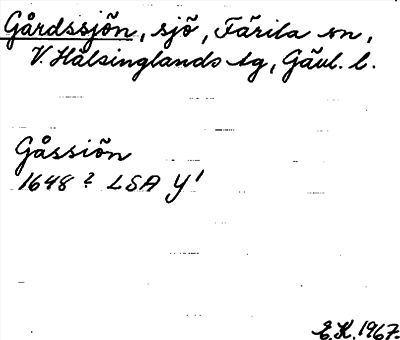 Gårdssjön, sjö, Färila sn,
V. Hälsinglands tg, Gävl. l.
Gåssiön
1648? LSA Y¹
E.K. 1967.